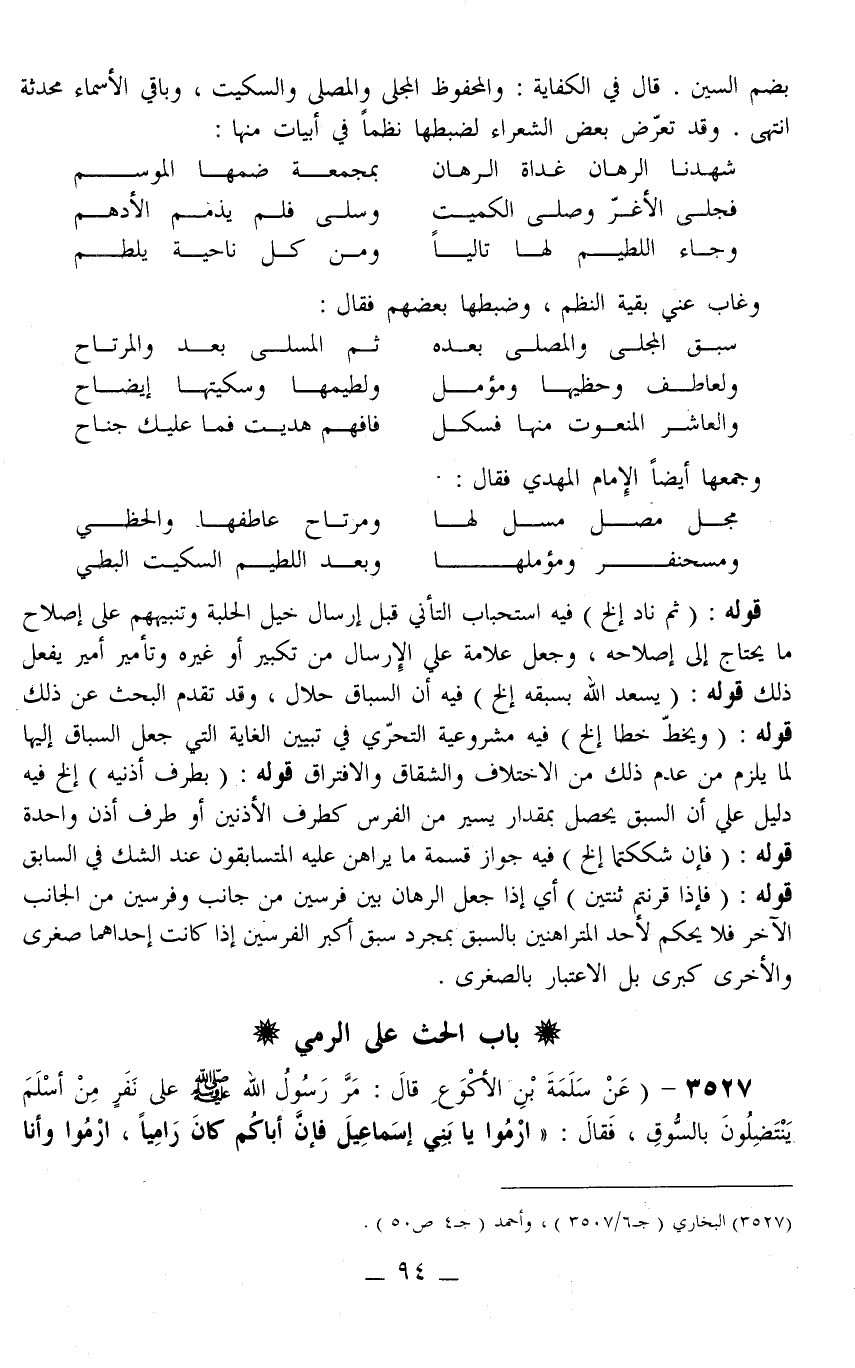 بضم السين . قال في الكفاية : والمحفوظ المجلى والمصلى والسكيت ، وباقي الأسماء محدثة
انتهى . وقد تعرّض بعض الشعراء لضبطها نظماً في أبيات منها :
شهدنا الرهان غداة الرهان بمجمعة ضمها الموسم
فجلى الأغرّ وصلى الكميت وسلى فلم يذمم الأدهم
وجاء اللطيم لها تالياً ومن كل ناحية يلطم
وغاب عني بقية النظم ، وضبطها بعضهم فقال :
سبق المجلى والمصلى بعده ثم المسلى بعد والمرتاح
ولعاطف وحظيها ومؤمل ولطيمها وسكيتها إيضاح
والعاشر المنعوت منها فسكل فافهم هديت فما عليك جناح
وجمعها أيضاً الإمام المهدي فقال :
مجل مصل مسل لها ومرتاح عاطفها والحظي
ومسحنفر ومؤملها وبعد اللطيم السكيت البطي
قوله : ( ثم ناد إلخ ) فيه استحباب التأني قبل إرسال خيل الحلبة وتنبيههم على إصلاح
ما يحتاج إلى إصلاحه ، وجعل علامة علي الإرسال من تكبير أو غيره وتأمير أمير يفعل
ذلك قوله : ( يسعد الله بسبقه إلخ ) فيه أن السباق حلال ، وقد تقدم البحث عن ذلك
قوله : ( ويخطّ خطا إلخ ) فيه مشروعية التحرّي في تبيين الغاية التي جعل السباق إليها
لما يلزم من عدم ذلك من الاختلاف والشقاق والافتراق قوله : ( بطرف أذنيه ) إلخ فيه
دليل علي أن السبق يحصل بمقدار يسير من الفرس كطرف الأذنين أو طرف أذن واحدة
قوله : ( فإن شككتما إلخ ) فيه جواز قسمة ما يراهن عليه المتسابقون عند الشك في السابق
قوله : ( فإذا قرنتم ثنتين ) أي إذا جعل الرهان بين فرسين من جانب وفرسين من الجانب
الآخر فلا يحكم لأحد المتراهنين بالسبق بمجرد سبق أكبر الفرسين إذا كانت إحداهما صغرى
والأخرى كبرى بل الاعتبار بالصغرى .
باب الحث على الرمي
٣٥٢٧ – ( عَنْ سَلَمَةَ بْنِ الأكْوَعِ قالَ : مَرَّ رَسُولُ الله ﷺ على نَفَرٍ مِنْ أسْلَمَ
يَنْتَضِلُونَ بالسُّوقِ ، فَقالَ : « ارْمُوا يا بَنِي إسَماعِيلَ فإنَّ أباكُم كانَ رَامِياً ، ارْمُوا وأنا
(٣٥٢٧) البخاري ( جـ٦/٣٥٠٧ ) ، وأحمد ( جـ٤ ص٥٠ ) .
_ ٩٤ _